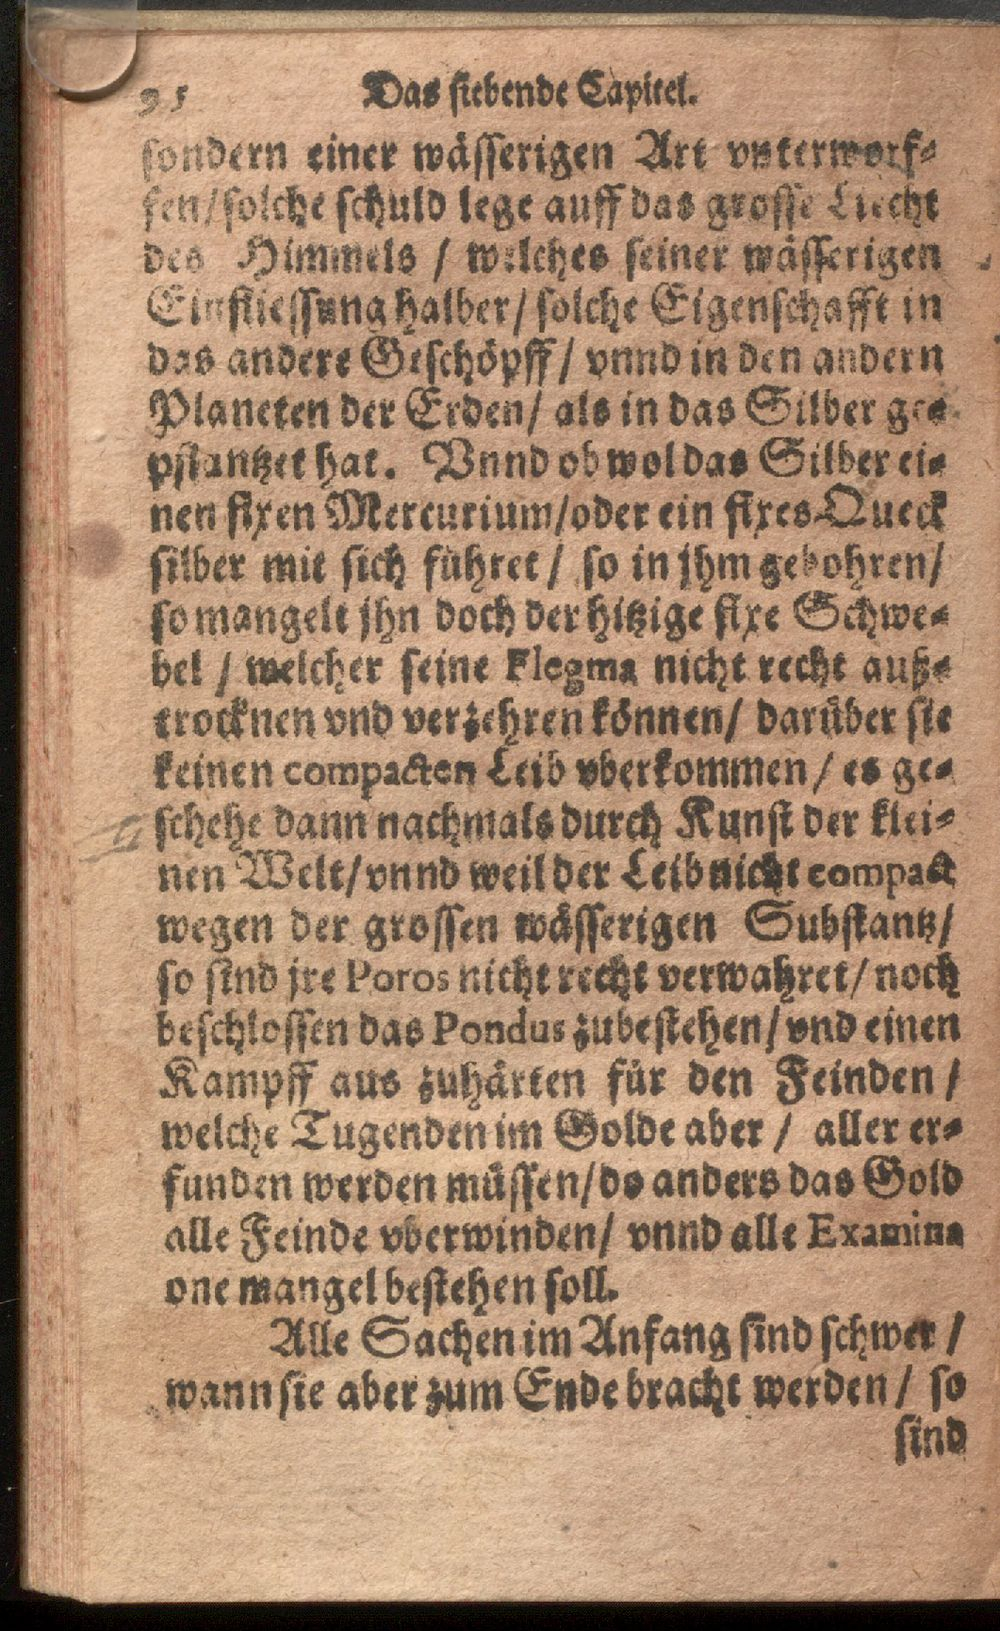 95 Das siebende Capitel.
sondern einer wässerigen Art vnterworf-
fen/solche schuld lege auff das grosse Liecht
des Himmels / welches seiner wässerigen
Einfliessung halber/ solche Eigenschafft in
das andere Geschöpff/ vnnd in den andern
Planeten der Erden/ als in das Silber ge-
pflantzet hat. Vnnd ob wol das Silber ei-
nen fixen Mercurium/oder ein fixes Queck
silber mit sich führet / so in jhm gebohren/
so mangelt jhn doch der hitzige fixe Schwe-
bel / welcher seine Flegma nicht recht auß-
trocknen vnd verzehren können/ darüber sie
keinen compacten Leib vberkommen / es ge-
schehe dann nachmals durch Kunst der klei-
nen Welt/vnnd weil der Leib nicht compact
wegen der grossen wässerigen Substantz/
so sind jre Poros nicht recht verwahret/ noch
beschlossen das Pondus zubestehen/ vnd einen
Kampff aus zuhärten für den Feinden /
welche Tugenden im Golde aber / aller er-
funden werden müssen/do anders das Gold
alle Feinde vberwinden/ vnnd alle Examina
one mangel bestehen soll.
Alle Sachen im Anfang sind schwer /
wann sie aber zum Ende bracht werden / so
sind